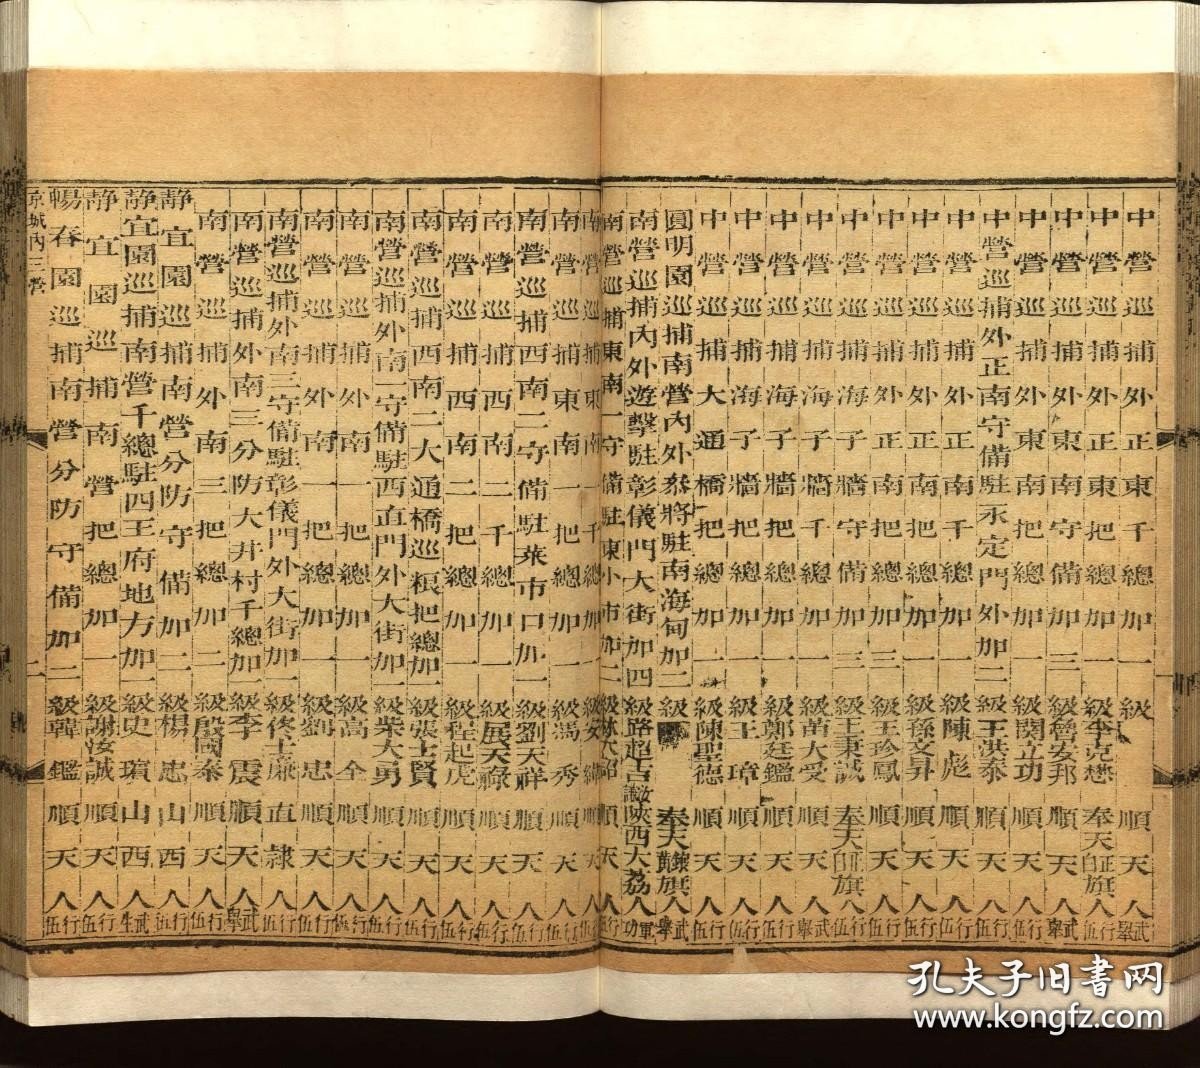 中營巡捕外正東千總加一級 順天人武舉
中營巡捕外正東把總加一級李克懋奉天正旗人行伍
中營巡捕外東南守備加三級魯安邦順天人武舉
中營巡捕外東南把總加一級関立功順天人行伍
中營巡捕外正南守備駐永定門外加二級王洪泰順天人行伍
中營巡捕外正南千總加一級陳彪順天人行伍
中營巡捕外正南把總加一級孫文昇順天人行伍
中營巡捕外正南把總加三級王珍鳳順天人行伍
中營巡捕海子牆守備加三級王秉誠奉天正旗人行伍
中營巡捕海子牆千總加一級苗大受順天人武舉
中營巡捕海子牆把總加一級鄭廷鑑順天人行伍
中營巡捕海子牆把總加一級王璋順天人行伍
中營巡捕大通橋把總加一級陳聖德順天人行伍
圓明園巡捕南營內外叅將駐南海甸加二級 奉天鑲黃旗人武舉
南營巡捕內外遊擊駐彰儀門大街加四級路超吉陝西大荔人軍功
南營巡捕東南一守備駐東小市加二級林大韶順天人行伍
南營巡捕東南一千總加一級安 順天人行伍
南營巡捕東南一把總加一級馮秀順天人行伍
南營巡捕西南二守備駐菜市口加一級劉天祥順天人行伍
南營巡捕西南二千總加一級展天祿順天人行伍
南營巡捕西南二把總加一級程起虎順天人行伍
南營巡捕西南二大通橋巡粮把總加一級張士賢順天人行伍
南營巡捕外南一守備駐西直門外大街加一級柴大勇順天人行伍
南營巡捕外南一把總加一級高全順天人行伍
南營巡捕外南一把總加一級劉忠順天人行伍
南營巡捕外南三守備駐彰儀門外大街加一級佟士廉直隸人行伍
南營巡捕外南三分防大井村千總加一級李震順天人武舉
南營巡捕外南三把總加一級殷國泰順天人行伍
靜宜園巡捕南營分防守備加二級楊忠山西人行伍
靜宜園巡捕南營千總駐四王府地方加一級史璸山西人武生
靜宜園巡捕南營把總加一級謝汝誠順天人行伍
暢春園巡捕南營分防守備加二級韓鑑順天人行伍
京城內三營 二
孔夫子旧書网
www.kongfz.com